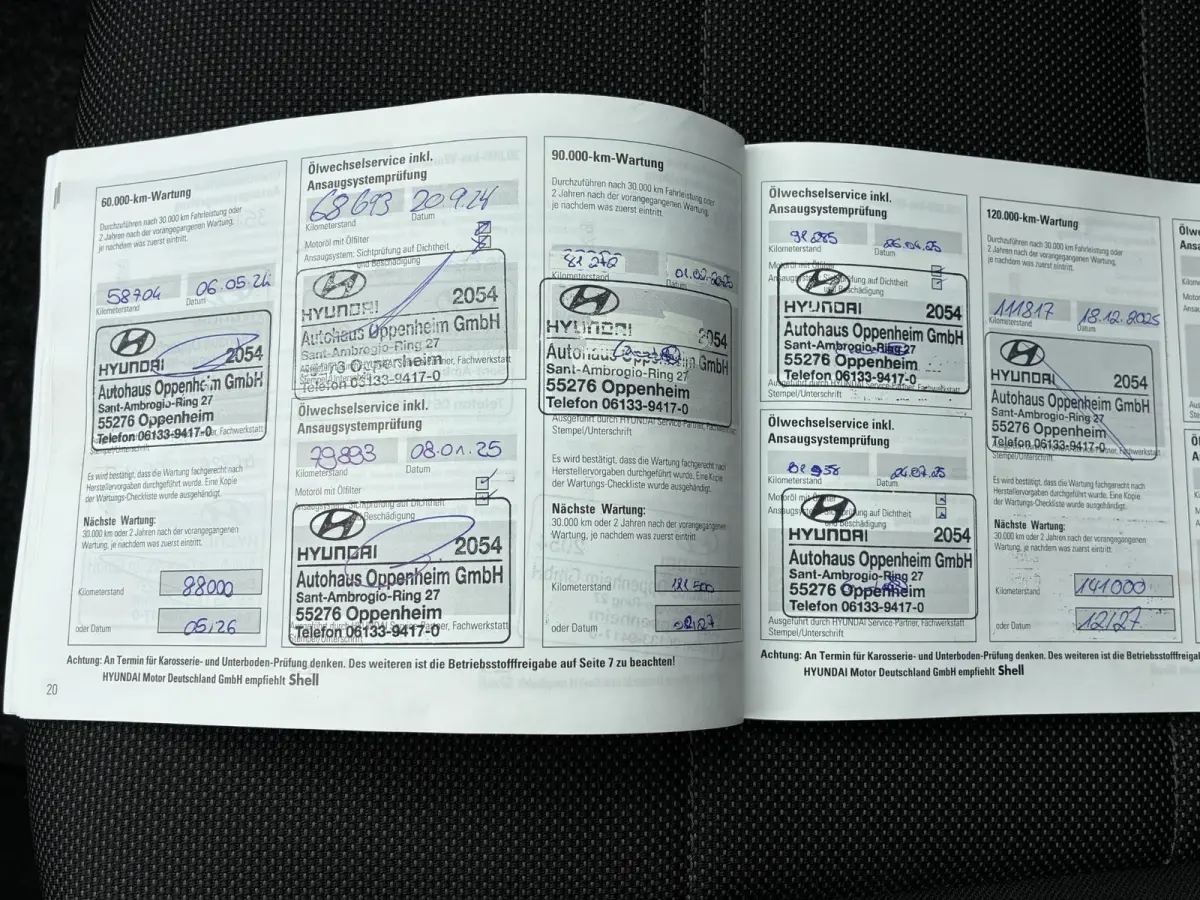 60.000-km-Wartung
Durchzuführen nach 30.000 km Fahrleistung oder
2 Jahren nach der vorangegangenen Wartung,
je nachdem was zuerst eintritt.
58704 06.05.24
Kilometerstand Datum
HYUNDAI 2054
Autohaus Oppenheim GmbH
Sant-Ambrogio-Ring 27
55276 Oppenheim
Telefon 06133-9417-0
Stempel/Unterschrift
Es wird bestätigt, dass die Wartung fachgerecht nach
Herstellervorgaben durchgeführt wurde. Eine Kopie
der Wartungs-Checkliste wurde ausgehändigt.
Nächste Wartung:
30.000 km oder 2 Jahren nach der vorangegangenen
Wartung, je nachdem was zuerst eintritt
Kilometerstand 88000
oder Datum 05.26
Ölwechselservice inkl.
Ansaugsystemprüfung
68693 20.9.24
Kilometerstand Datum
Motoröl mit Ölfilter
Ansaugsystem: Sichtprüfung auf Dichtheit
und Beschädigung
HYUNDAI 2054
Autohaus Oppenheim GmbH
Sant-Ambrogio-Ring 27
Oppenheim
Telefon 06133-9417-0
Ölwechselservice inkl.
Ansaugsystemprüfung
79893 08.01.25
Kilometerstand Datum
Motoröl mit Ölfilter
Ansaugsystem: Sichtprüfung auf Dichtheit
Beschädigung
HYUNDAI 2054
Autohaus Oppenheim GmbH
Sant-Ambrogio-Ring 27
55276 Oppenheim
Telefon 06133-9417-0
Stempel/Unterschrift
90.000-km-Wartung
Durchzuführen nach 30.000 km Fahrleistung oder
2 Jahren nach der vorangegangenen Wartung,
je nachdem was zuerst eintritt.
Kilometerstand Datum
HYUNDAI 2054
Autohaus Oppenheim GmbH
Sant-Ambrogio-Ring 27
55276 Oppenheim
Telefon 06133-9417-0
Ausgeführt durch HYUNDAI Service-Partner, Fachwerkstatt
Stempel/Unterschrift
Es wird bestätigt, dass die Wartung fachgerecht nach
Herstellervorgaben durchgeführt wurde. Eine Kopie
der Wartungs-Checkliste wurde ausgehändigt.
Nächste Wartung:
30.000 km oder 2 Jahren nach der vorangegangenen
Wartung, je nachdem was zuerst eintritt
Kilometerstand
oder Datum 02.27
Achtung: An Termin für Karosserie- und Unterboden-Prüfung denken. Des weiteren ist die Betriebsstofffreigabe auf Seite 7 zu beachten!
HYUNDAI Motor Deutschland GmbH empfiehlt Shell
20
Ölwechselservice inkl.
Ansaugsystemprüfung
Kilometerstand Datum
Motoröl mit Ölfilter
und Beschädigung
HYUNDAI 2054
Autohaus Oppenheim GmbH
Sant-Ambrogio-Ring 27
55276 Oppenheim
Telefon 06133-9417-0
Stempel/Unterschrift
Ölwechselservice inkl.
Ansaugsystemprüfung
Kilometerstand Datum
Motoröl mit Ölfilter
und Beschädigung
HYUNDAI 2054
Autohaus Oppenheim GmbH
Sant-Ambrogio-Ring 27
55276 Oppenheim
Telefon 06133-9417-0
Ausgeführt durch HYUNDAI Service-Partner, Fachwerkstatt
Stempel/Unterschrift
120.000-km-Wartung
Durchzuführen nach 30.000 km Fahrleistung oder
2 Jahren nach der vorangegangenen Wartung,
je nachdem was zuerst eintritt.
111817 18.12.2025
Kilometerstand Datum
HYUNDAI 2054
Autohaus Oppenheim GmbH
Sant-Ambrogio-Ring 27
55276 Oppenheim
Telefon 06133-9417-0
Stempel/Unterschrift
Es wird bestätigt, dass die Wartung fachgerecht nach
Herstellervorgaben durchgeführt wurde. Eine Kopie
der Wartungs-Checkliste wurde ausgehändigt.
Nächste Wartung:
30.000 km oder 2 Jahren nach der vorangegangenen
Wartung, je nachdem was zuerst eintritt
Kilometerstand 141000
oder Datum 12/27
Achtung: An Termin für Karosserie- und Unterboden-Prüfung denken. Des weiteren ist die Betriebsstofffreigab
HYUNDAI Motor Deutschland GmbH empfiehlt Shell